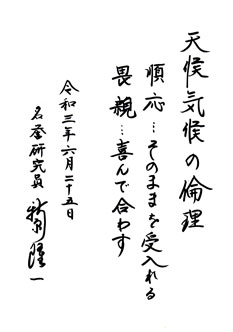 天候気候の倫理
順応…そのままを受入れる
畏親…喜んで合わす
令和三年六月二十五日
名誉研究員 新田隆一